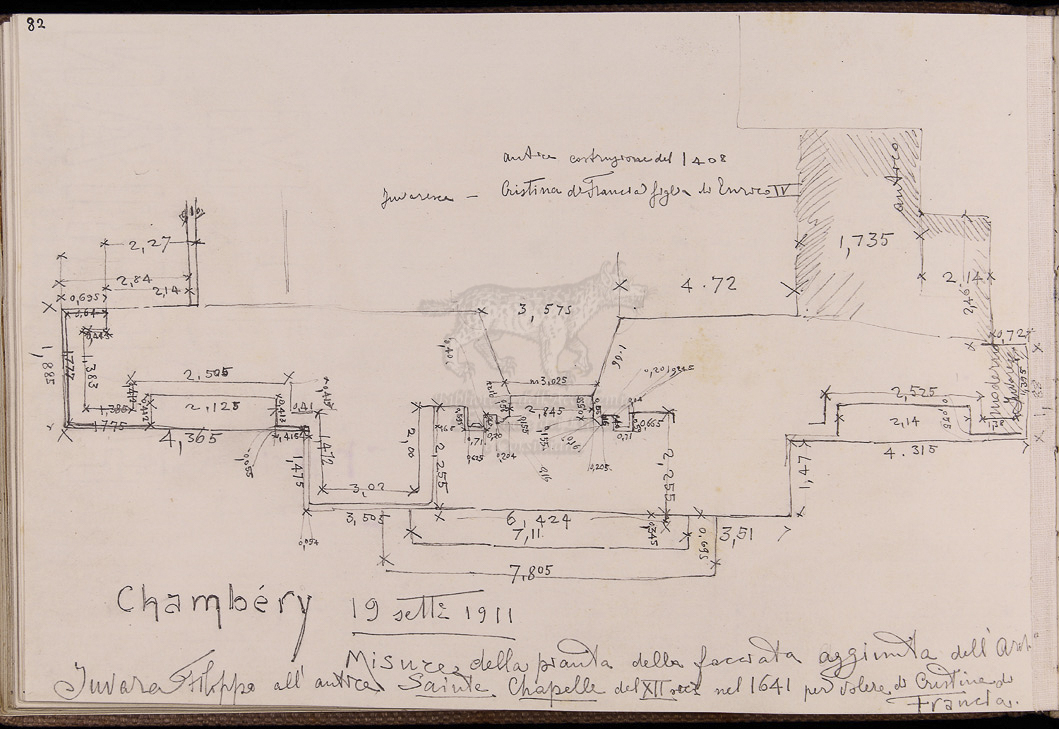 82
antica costruzione del 1408
Juvaresca - Cristina di Francia figlia di Enrico IV
antico
1,735
2,27
2,84
2,14
0,695
3,575
4.72
2.14
0,72
1,885
1,383
2,505
2,125
1775
4,365
m3,025
2,845
1.06
moderno
2,525
2,14
4.315
1,475
1,472
3,02
2,00
2,255
2,255
1,47
3,505
6,424
7,11
0,345
0,695
3,51
0,054
7,805
Chambéry 19 sette 1911
Misure della pianta della facciata aggiunta dell'Arch°
Juvara Filippo all'antica Sainte Chapelle del XII sec nel 1641 per volere di Cristina di
Francia.